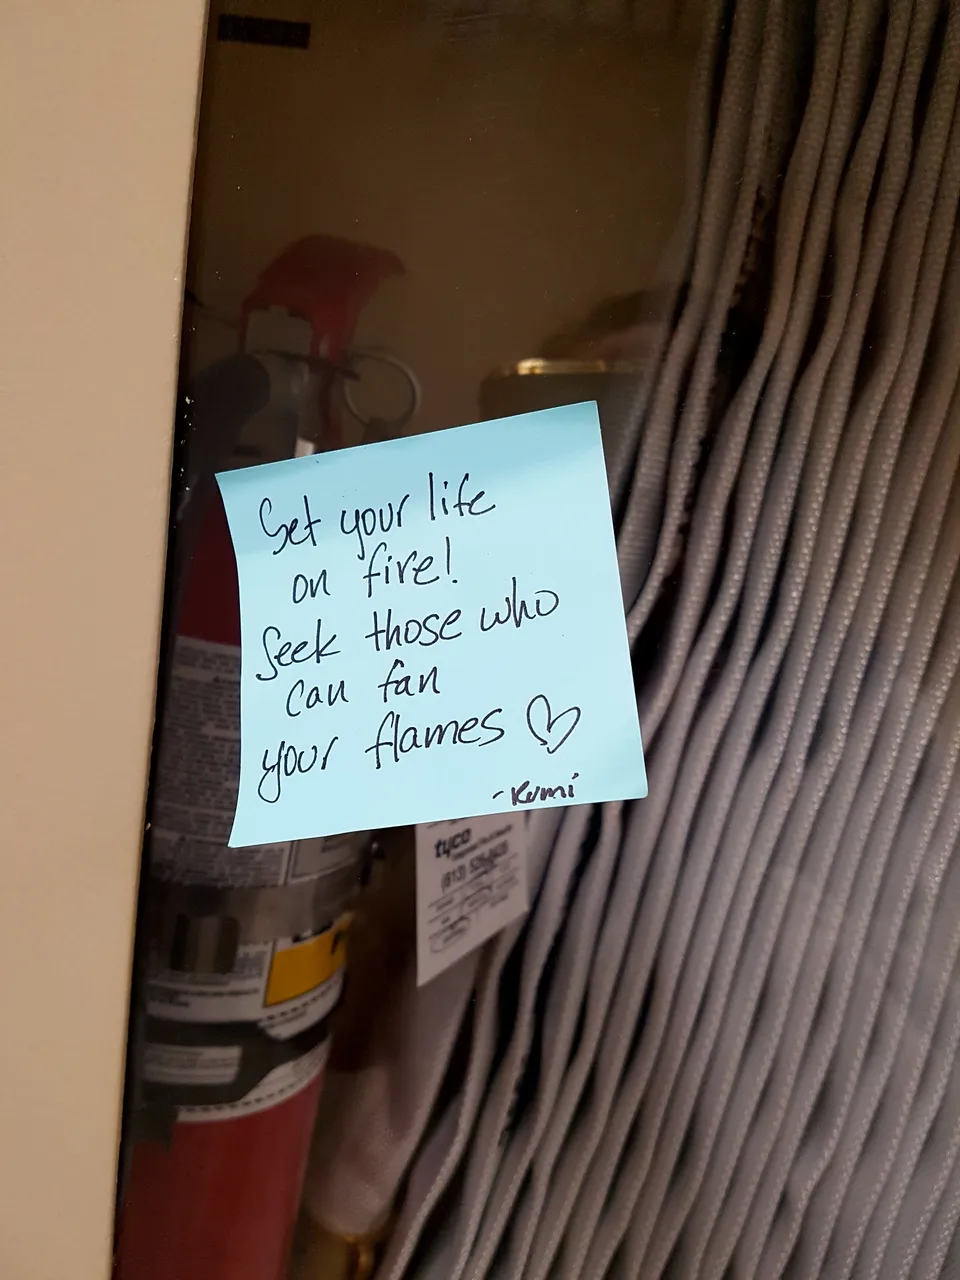 Set your life
on fire!
Seek those who
can fan
your flames
-Rumi
tyco